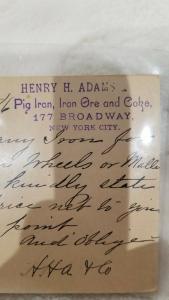 HENRY H. ADAMS
Pig Iron, Iron Ore and Coke,
177 BROADWAY,
NEW YORK CITY.
Iron for
Wheels or Malle
kindly state
price net to give
point
And Oblige
H.H.A & Co